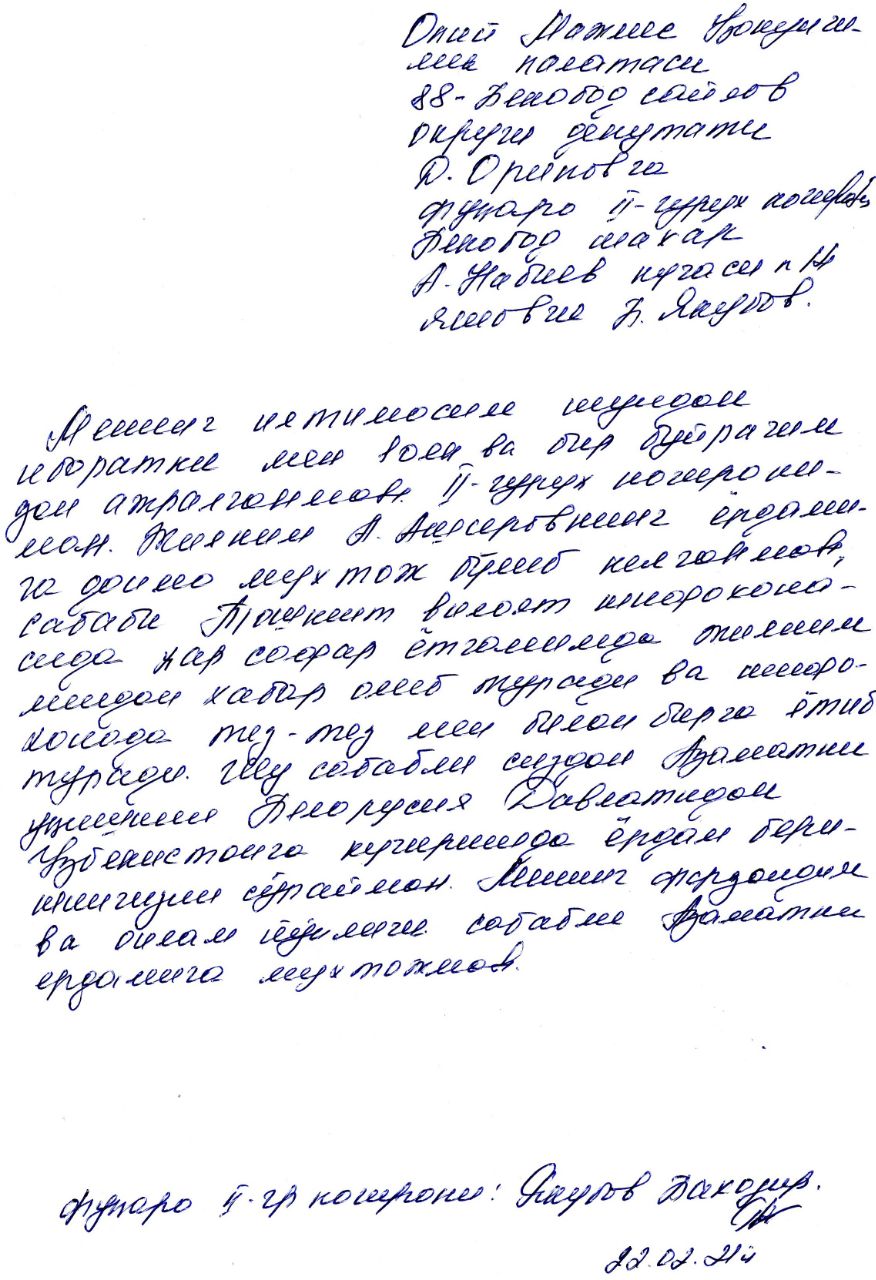 Олий Мажлис Қонунчи-
лик палатаси
88-Бекобод сайлов
округи депутати
Д. Ориповга
фуқаро II-гурух ногирони
Бекобод шахар
А. Набиев кучаси н 14
яшовчи Б. Якубов.
Менинг илтимосим шундан
иборатки мен ва бир буйрагим
дан ажралганман. II-гурух ногирони-
ман. Жияним А. ёрдами-
га доимо мухтож булиб келганман,
сабаби Тошкент вилоят шифохона-
сида хар сафар ётганимда жияним
мендан хабар олиб туради ва шифо-
хонада тез-тез мен билан бирга ётиб
туради. Шу сабабли сиздан Азаматни
укишини Белорусия Давлатидан
Узбекистонга кучиришда ёрдам бери-
шингизни сурайман. Менинг фарзандим
ва оилам йуклиги сабабли Азаматни
ердамига мухтожман.
фуқаро II-гр ногирони: Якубов Баходир.
22.02.21й